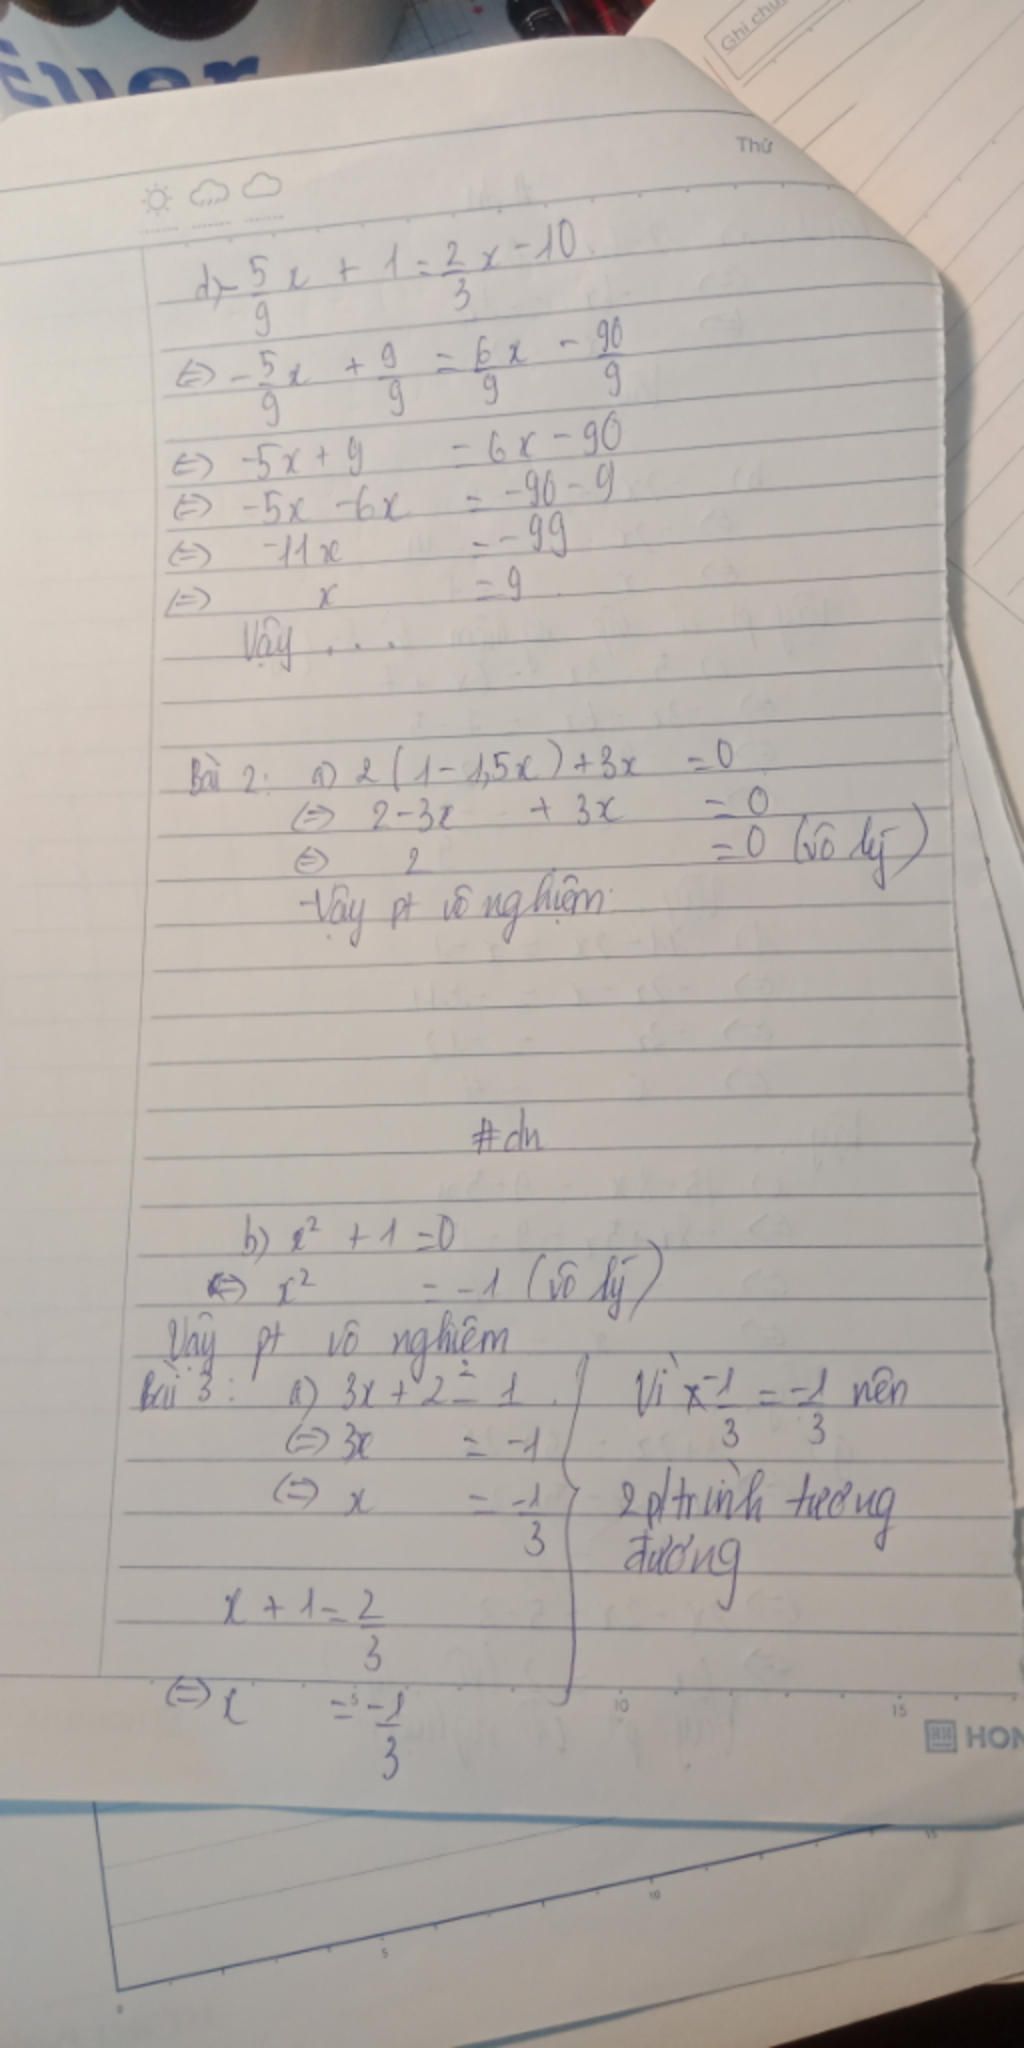 Ghi chú
Thứ
d) -5/9 x + 1 = 2/3 x - 10.
<=> -5/9 x + 9/9 = 6/9 x - 90/9
<=> -5x + 9 = 6x - 90
<=> -5x - 6x = -90 - 9
<=> -11x = -99
<=> x = 9
Vậy . . .
Bài 2: a) 2(1 - 1,5x) + 3x = 0
<=> 2 - 3x + 3x = 0
<=> 2 = 0 (vô lý)
-Vậy pt vô nghiệm.
#dn
b) x² + 1 = 0
<=> x² = -1 (vô lý)
Vậy pt vô nghiệm
Bài 3: a) 3x + 2 = 1
<=> 3x = -1
<=> x = -1/3
x + 1 = 2/3
<=> x = -1/3
Vì -1/3 = -1/3 nên
2 ptrình tương
đương
5 10 15
HON
0 5 10 15